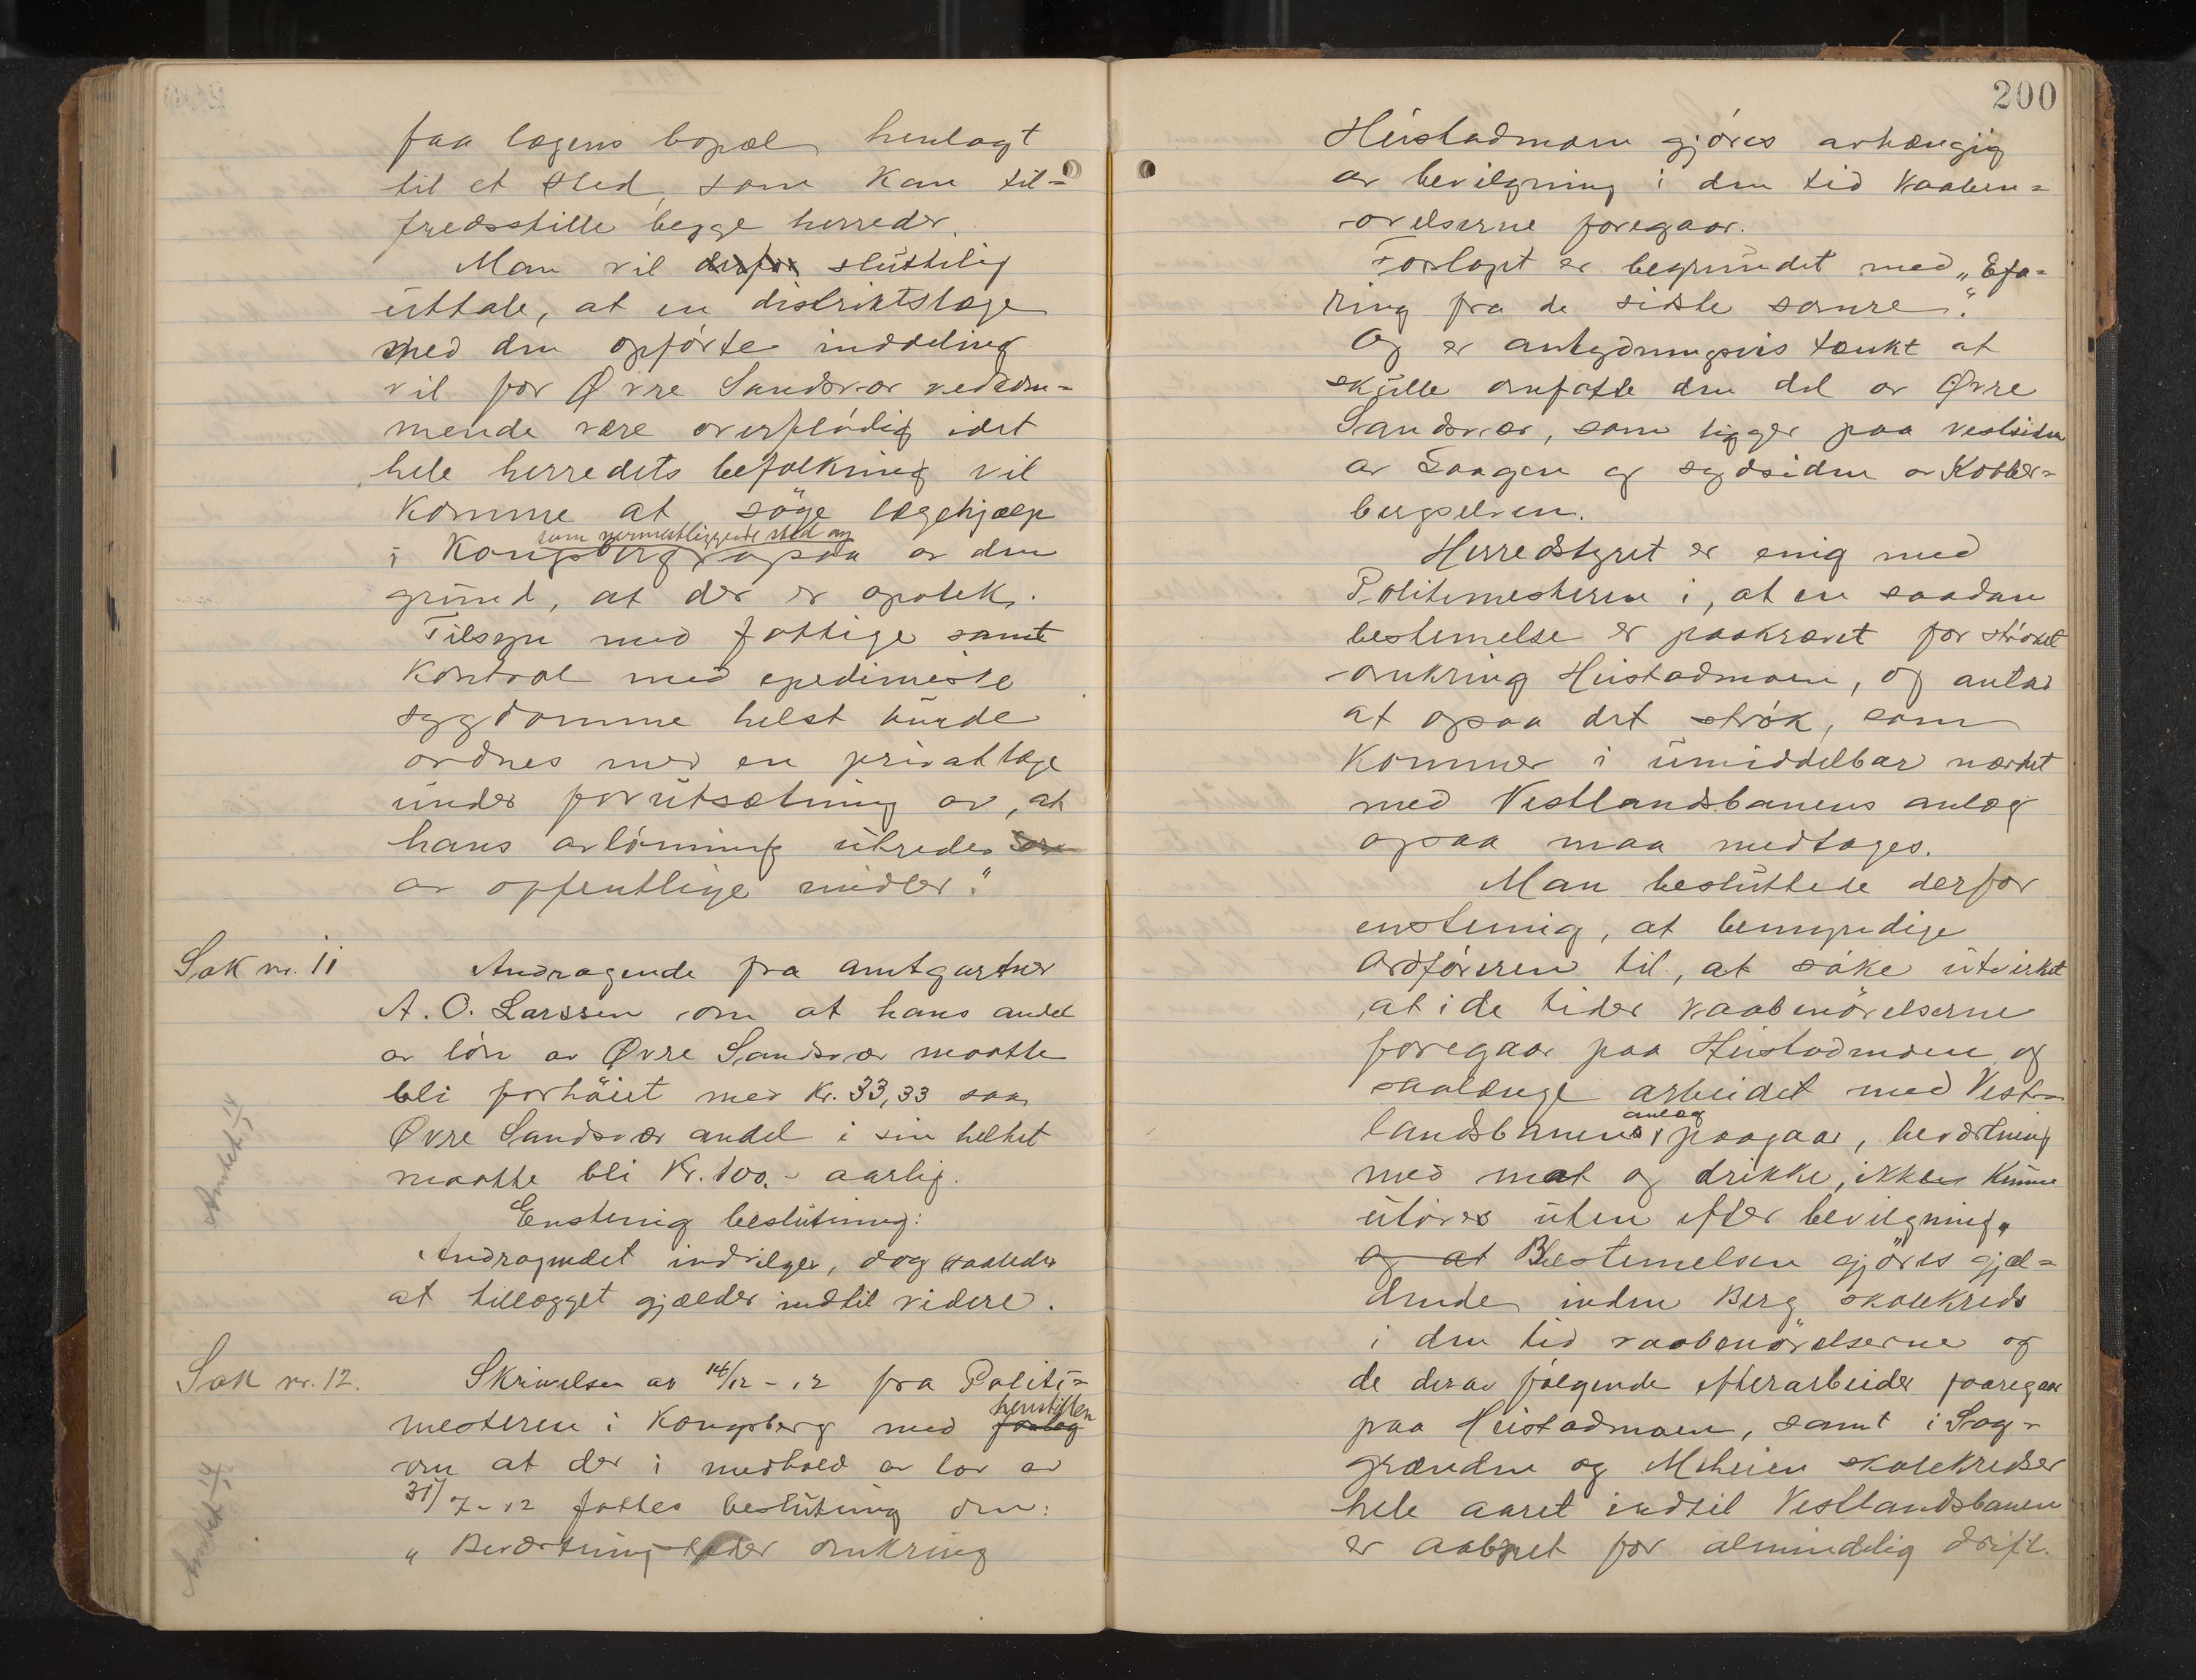 faa lægens bopæl henlagt
til et sted, som kan til=
fredsstille begge herreder.
Man vil derfor sluttelig
uttale, at en distriktslæge
med den opførte inddeling
vil for Øvre Sandsvær vedkom=
mende være overflødig idet
hele herredets befolkning vil
komme at søge lægehjælp
som nærmestliggende sted og
i Kongsberg ogsaa av den
grund, at der er apotek.
Tilsyn med fattige samt
kontrol med epedimiske
sygdomme helst burde
ordnes med en privatlæge
under forutsætning av, at
hans avlønning utredes
av offentlige midler."
Sak nr. 11
Andragende fra amtgartner
A. O. Larssen om at hans andel
av løn av Øvre Sandsvær maatte
bli forhøiet med Kr. 33,33 saa
Øvre Sandsvær andel i sin helhet
maatte bli Kr. 100.- aarlig.
Enstemig beslutning:
Andragendet indvilges, dog saaledes
at tillægget gjælder indtil videre.
Sak nr. 12.
Skrivelse av 14/12-12 fra Politi=
henstillen
mesteren i Kongsberg med forslag
om at der i medhold av lov av
31/7-12 fattes beslutning om:
"Beværtningssteder omkring
200
Heistadmoen gjøres avhængig
av bevilgning i den tid Vaaben=
øvelserne foregaar.
Forslaget er begrundet med "Efa=
ring fra de sidste somre."
Og er antydningsvis tænkt at
skulle omfatte den del av Øvre
Sandsvær, som ligger paa vestsiden
av Laagen og sydsiden av Kobber=
bergselven.
Herredstyret er enig med
Politimesteren i, at en saadan
bestemelse er paakrævet for strøket
omkring Heistadmoen, og antar
at ogsaa det strøk, som
kommer i umiddelbar nærhet
med Vestlandsbanens anlæg
ogsaa maa medtages.
Man besluttede derfor
enstemig, at bemyndige
Ordføreren til, at søke utvirket
at i de tider vaabenøvelserne
foregaar paa Heistadmoen og
saalænge arbeidet med Vest=
anlæg
landsbanens paagaar, beværtning
med mat og drikke, ikke kunne
utøves uten efter bevilgning.
og at Bestemelsen gjøres gjæl=
dende inden Berg skolekreds
i den tid vaabenøvelserne og
de derav følgende efterarbeider foregaar
paa Heistadmoen, samt i Sag=
grænden og Meheien skolekredser
hele aaret indtil Vestlandsbanen
er aabnet for almindelig drift.